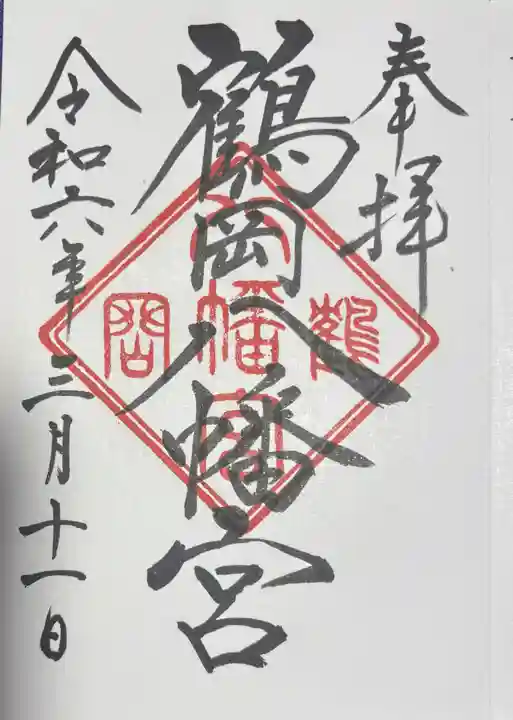 奉拝
鶴岡八幡宮
鶴
八幡宮
岡
令和六年三月十一日